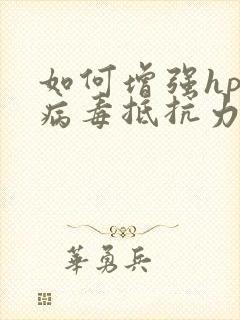 如何增强hp
病毒抵抗力
華勇兵